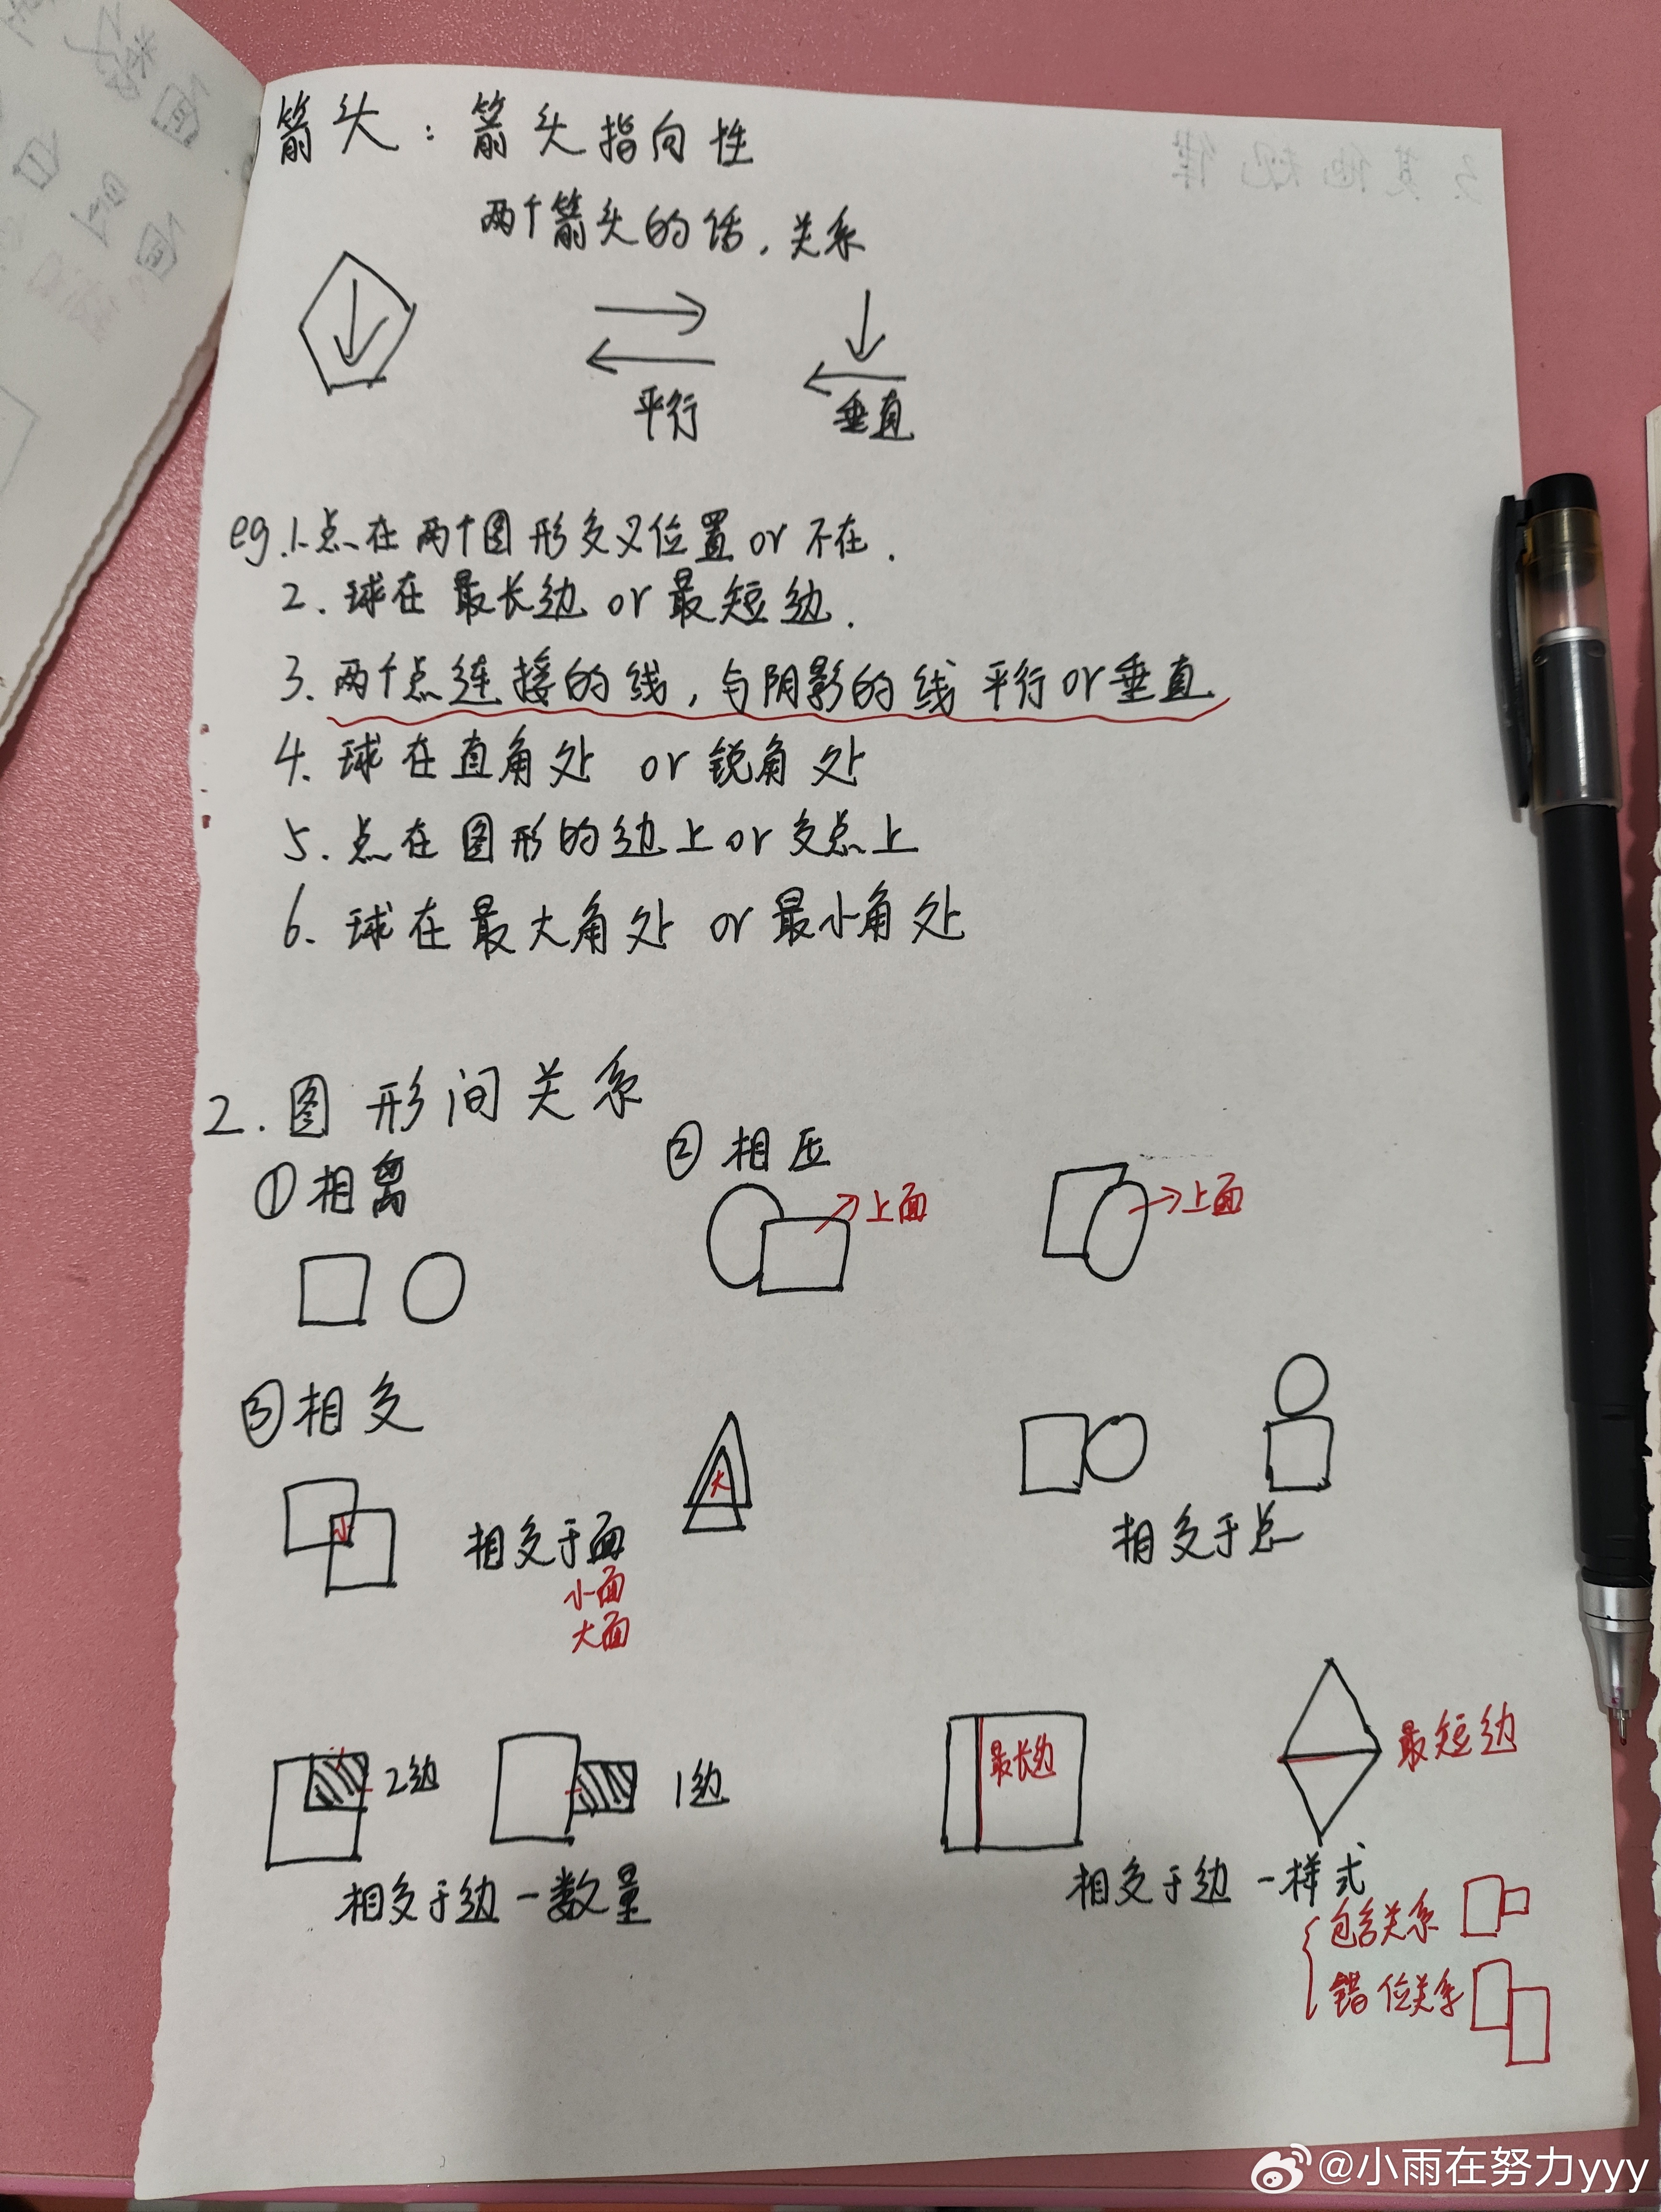 箭头：箭头指向性
两个箭头的话，关系
平行
垂直
eg.1.点在两个图形交叉位置or不在.
2.球在最长边or最短边.
3.两个点连接的线,与阴影的线平行or垂直
4.球在直角处 or锐角处
5.点在图形的边上or交点上
6.球在最大角处 or最小角处
2.图形间关系
①相离
②相压
上面
上面
③相交
小
相交于面
小面
大面
大
相交于点
2边
1边
相交于边-数量
最长边
最短边
相交于边-样式
包含关系
错位关系
3.其他规律
@小雨在努力yyy